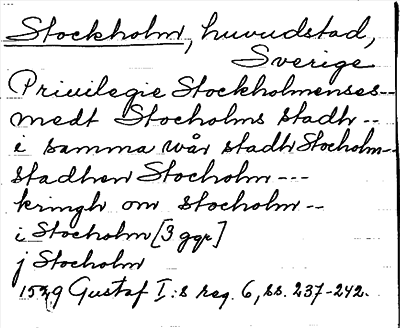 Stockholm, huvudstad,
Sverige
Privilegie Stockholmenses--
medt Stocholms stadh--
i samma wår stadh Stocholm--
stadhen Stocholm ---
kringh om Stocholm --
i Stocholm [3 ggr]
j Stocholm
1529 Gustaf I:s reg. 6, ss. 237-242.